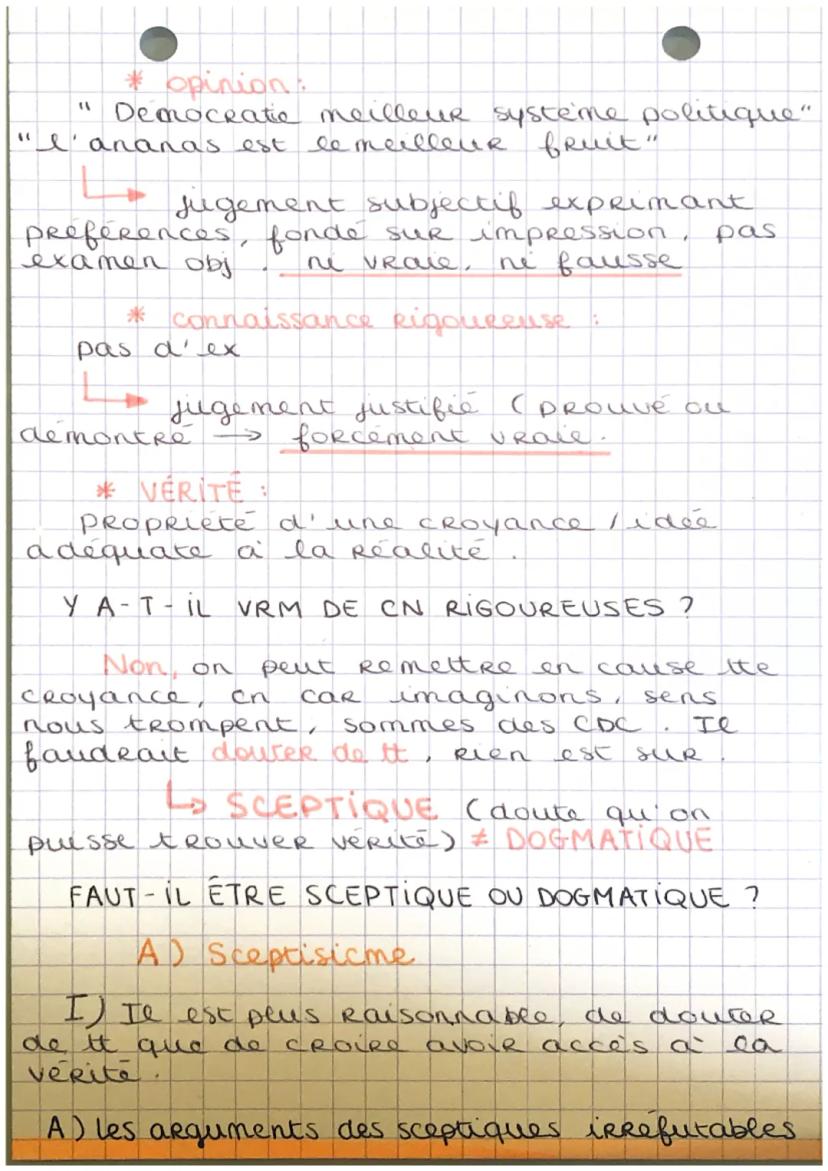 * opinion :
" Démocratie meilleur système politique"
"l'ananas est le meilleur fruit"
jugement subjectif exprimant
préférences, fondé sur impression, pas
examen obj. ni vraie, ni fausse
* connaissance rigoureuse :
pas d'ex
jugement justifié ( prouvé ou
démontré → forcément vraie.
* VÉRITÉ :
propriété d'une croyance / idée
adéquate à la réalité.
Y A-T-IL VRM DE CN RIGOUREUSES ?
Non, on peut remettre en cause tte
croyance, cn car imaginons, sens
nous trompent, sommes des CDC. Il
faudrait douter de tt, rien est sur.
↳ SCEPTIQUE (doute qu'on
puisse trouver vérité) ≠ DOGMATIQUE
FAUT-IL ÊTRE SCEPTIQUE OU DOGMATIQUE ?
A) Sceptisicme
I) Il est plus raisonnable, de douter
de tt que de croire avoir accès à la
vérité.
A) les arguments des sceptiques irréfutables